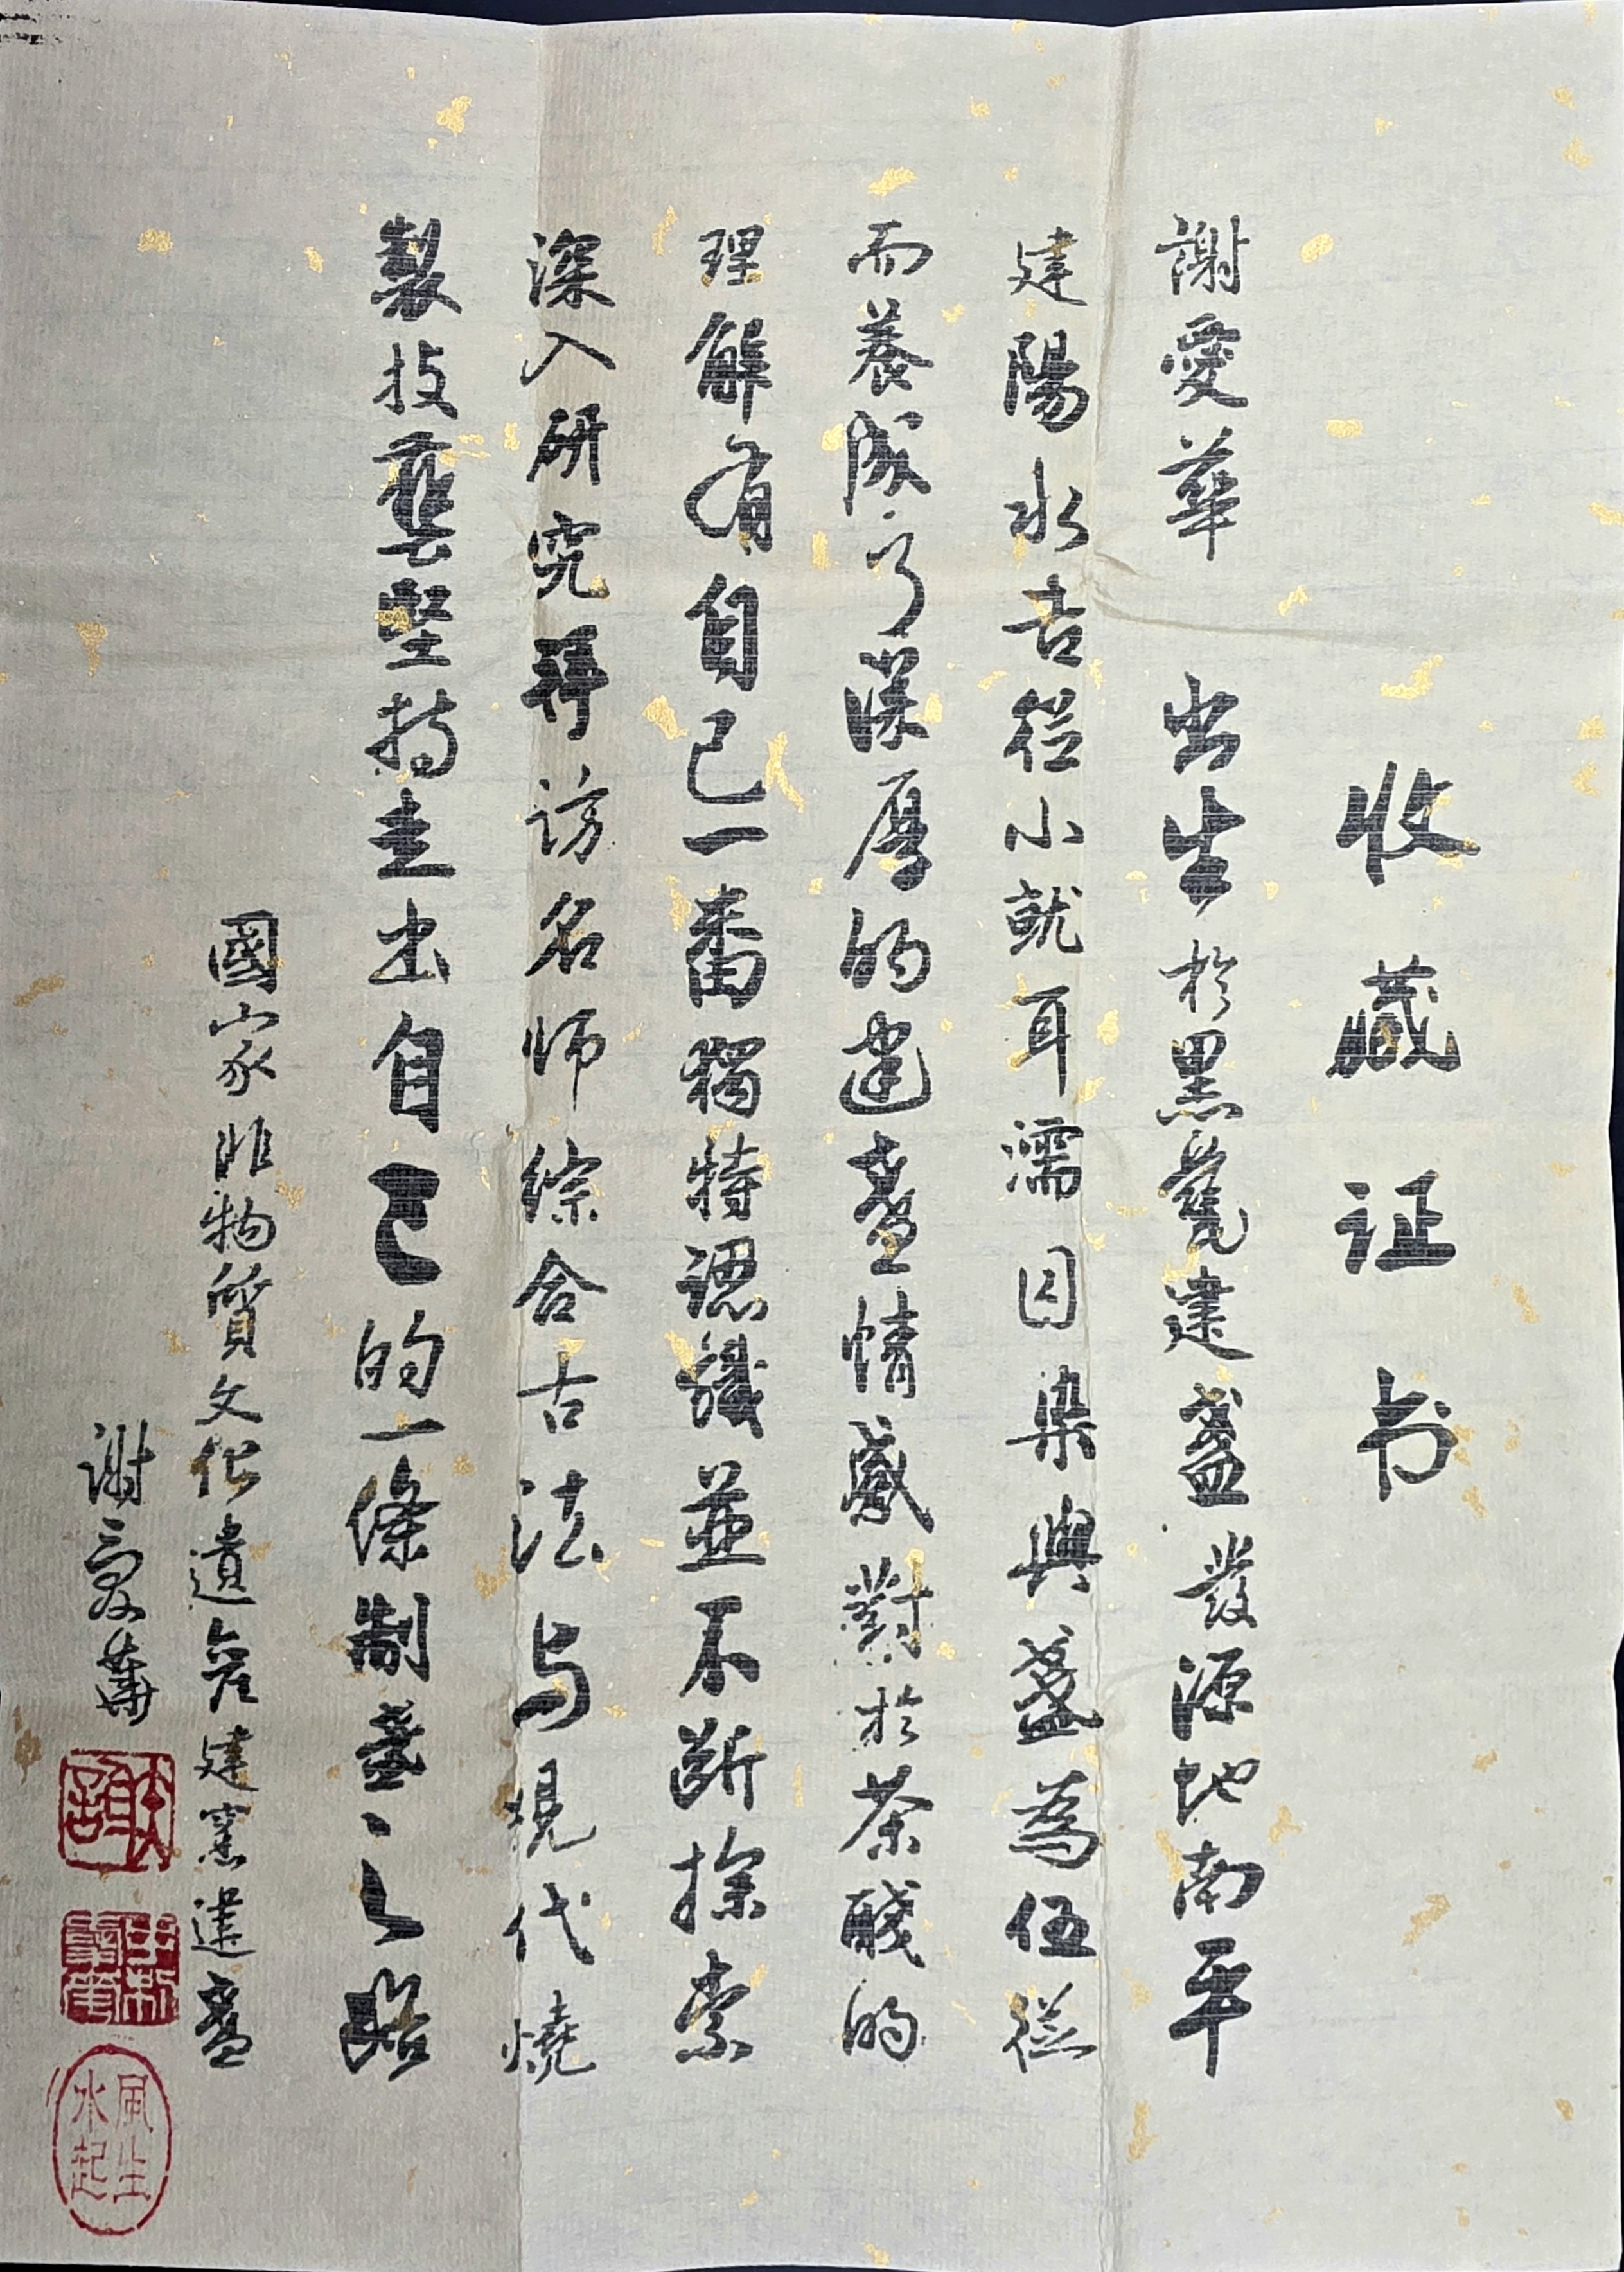 收藏证书
謝愛華 出生於黑瓷建盞發源地南平
建陽水吉從小就耳濡目染與盞為伍從
而養成了深厚的建盞情感對於茶醆的
理解有自己一番獨特認識並不断探索
深入研究拜访名师综合古法与现代燒
製技藝堅持走出自己的一條制盞之路
國家非物質文化遺產建窯建盞
謝愛華
風生水起